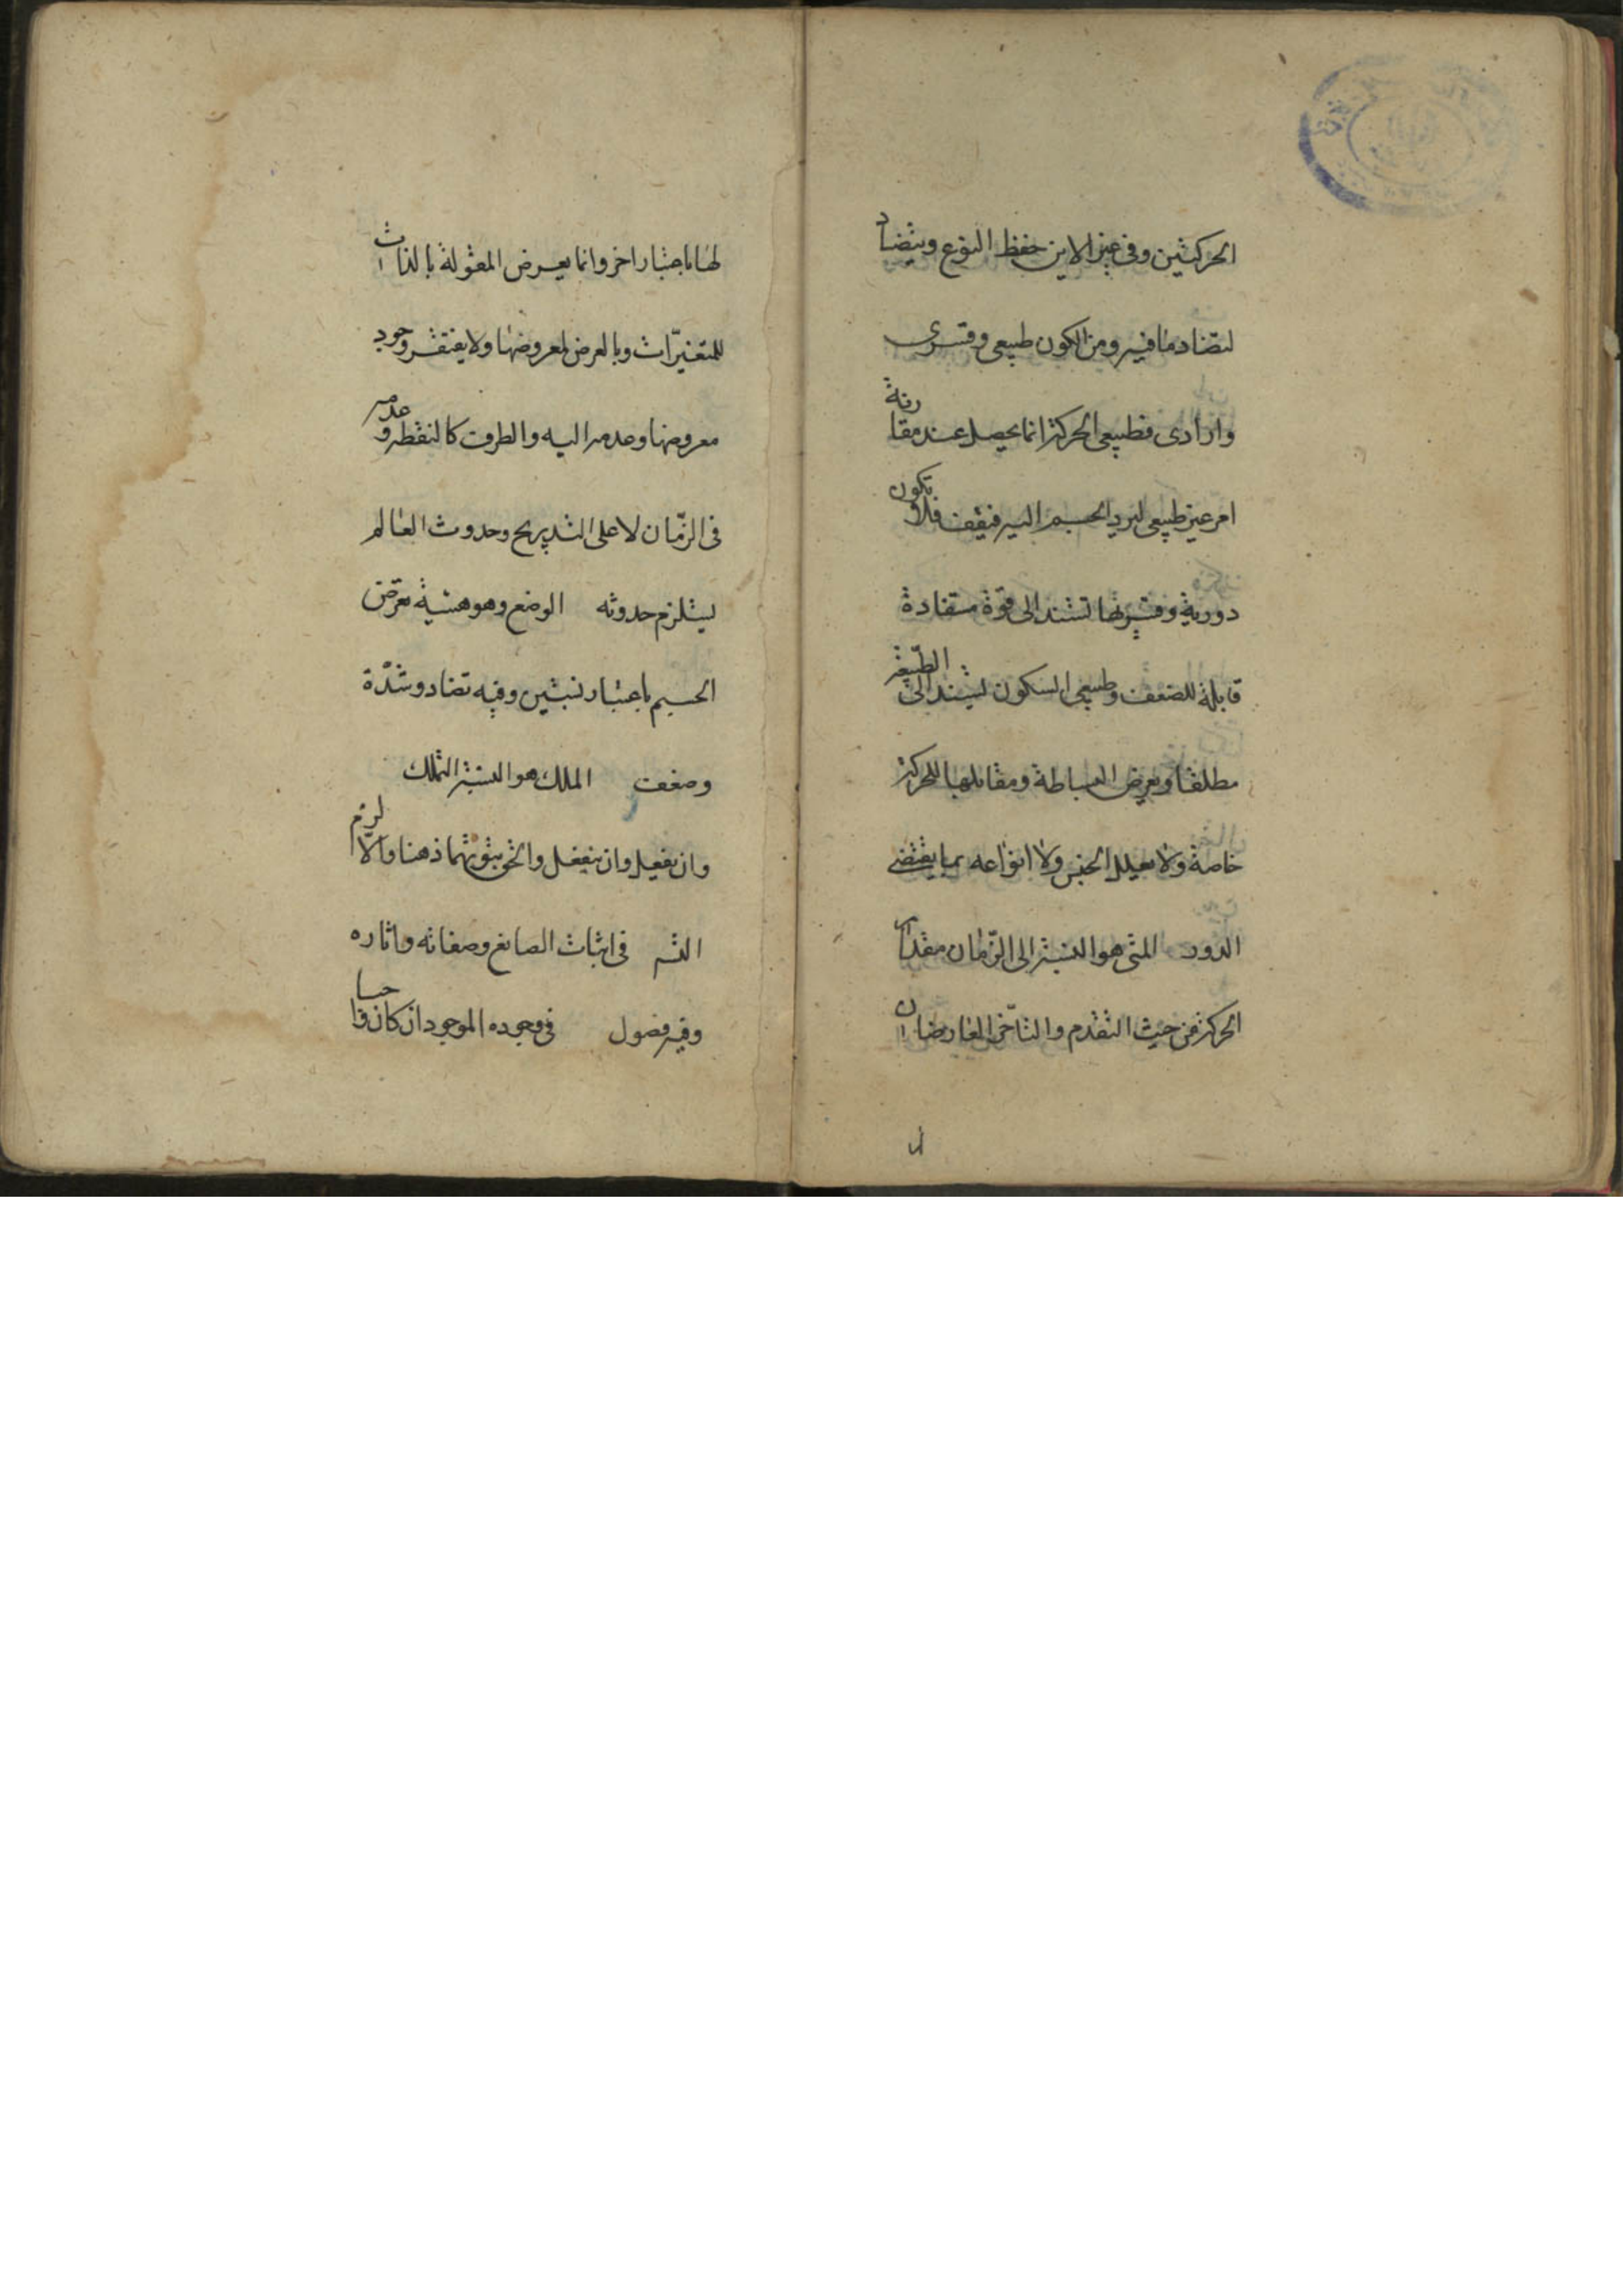 الحركتين وفي غير الاين حفظ النوع ويتضاد
لتضاد ما فيه ومن الكون طبيعي وقسري
وارادي فطبيعي الحركة انما يحصل عند مقارنة
امر غير طبيعي ليرد الجسم اليه فيقف فلا تكون
دورية وقسريتها تستند الى قوة مستفادة
قابلة للضعف وطبيعي السكون يستند الى الطبيعة
مطلقا ويعرض البساطة ومقابلها للحركة
خاصة ولا يعلل الجنس ولا انواعه بما يقتضي
الدور المتى هو النسبة الى الزمان مقدار
الحركة من حيث التقدم والتاخر العارضان
لها باعتبار اخر وانما يعرض المقولة بالذات
للمتغيرات وبالعرض لمعروضها ولا يفتقر وجود
معروضها وعدمه اليه والطرف كالنقطة وعدمه
في الزمان لا على التدريج وحدوث العالم
يستلزم حدوثه الوضع وهو هيئة تعرض
الجسم باعتبار نسبتين وفيه تضاد وشدة
وضعف الملك هو النسبة التملك
وان يفعل وان ينفعل والحق ثبوتهما ذهنا والا لزم
التسـ في اثبات الصانع وصفاته واثاره
وفيه فصول في وجوده الموجود ان كان واجبا